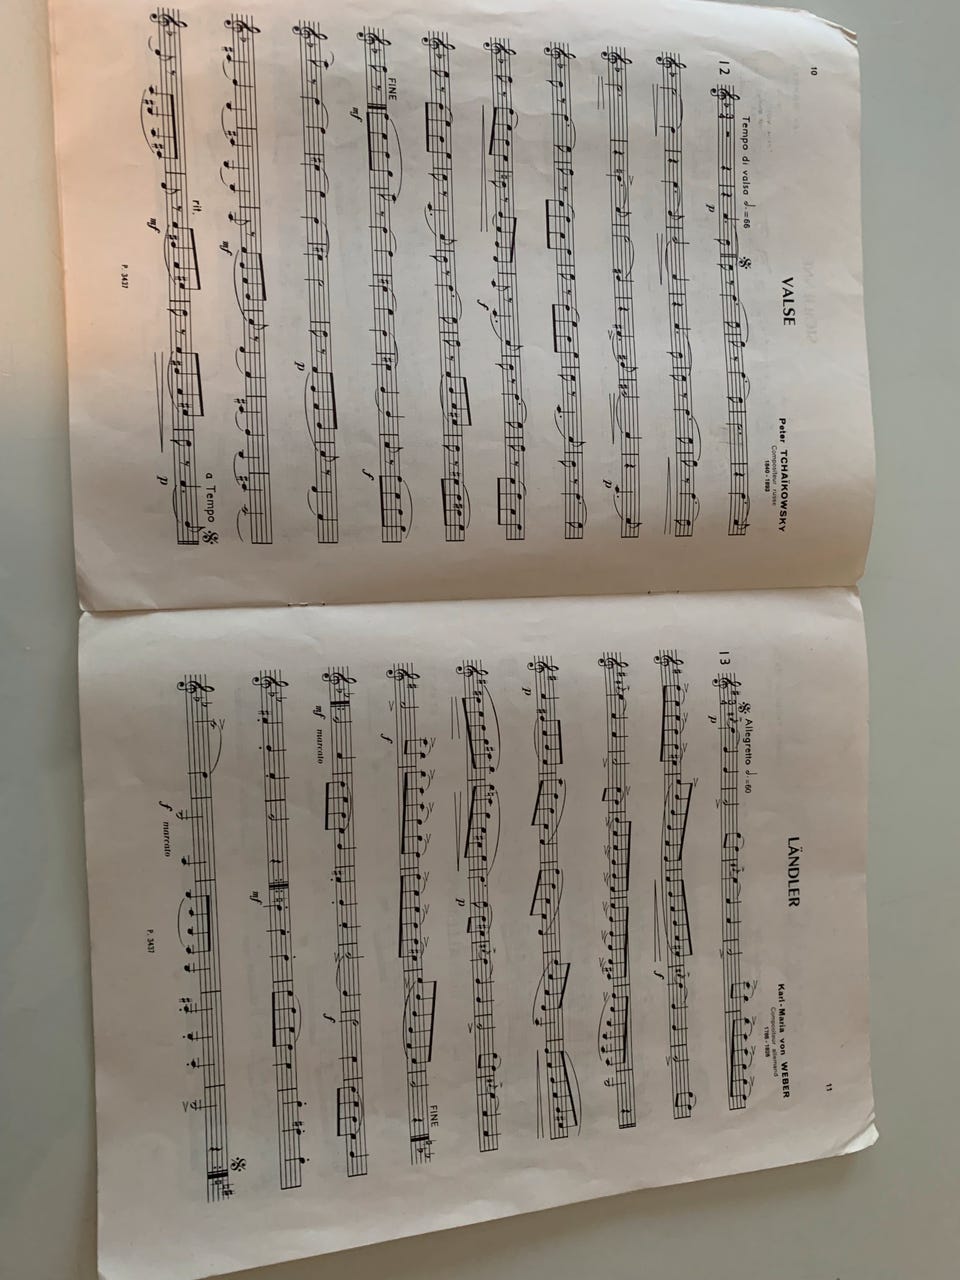 10
VALSE
Peter TCHAÏKOWSKY
Compositeur russe
1840-1893
12
Tempo di valse 𝅗𝅥. = 66
p
p
f
FINE
mf
f
p
mf
rit.
a Tempo
mf
p
P. 3437
11
LÄNDLER
Karl-Maria von WEBER
Compositeur allemand
1786-1826
13
Allegretto 𝅗𝅥. = 60
p
f
p
p
f
FINE
mf marcato
f
mf
f marcato
P. 3437